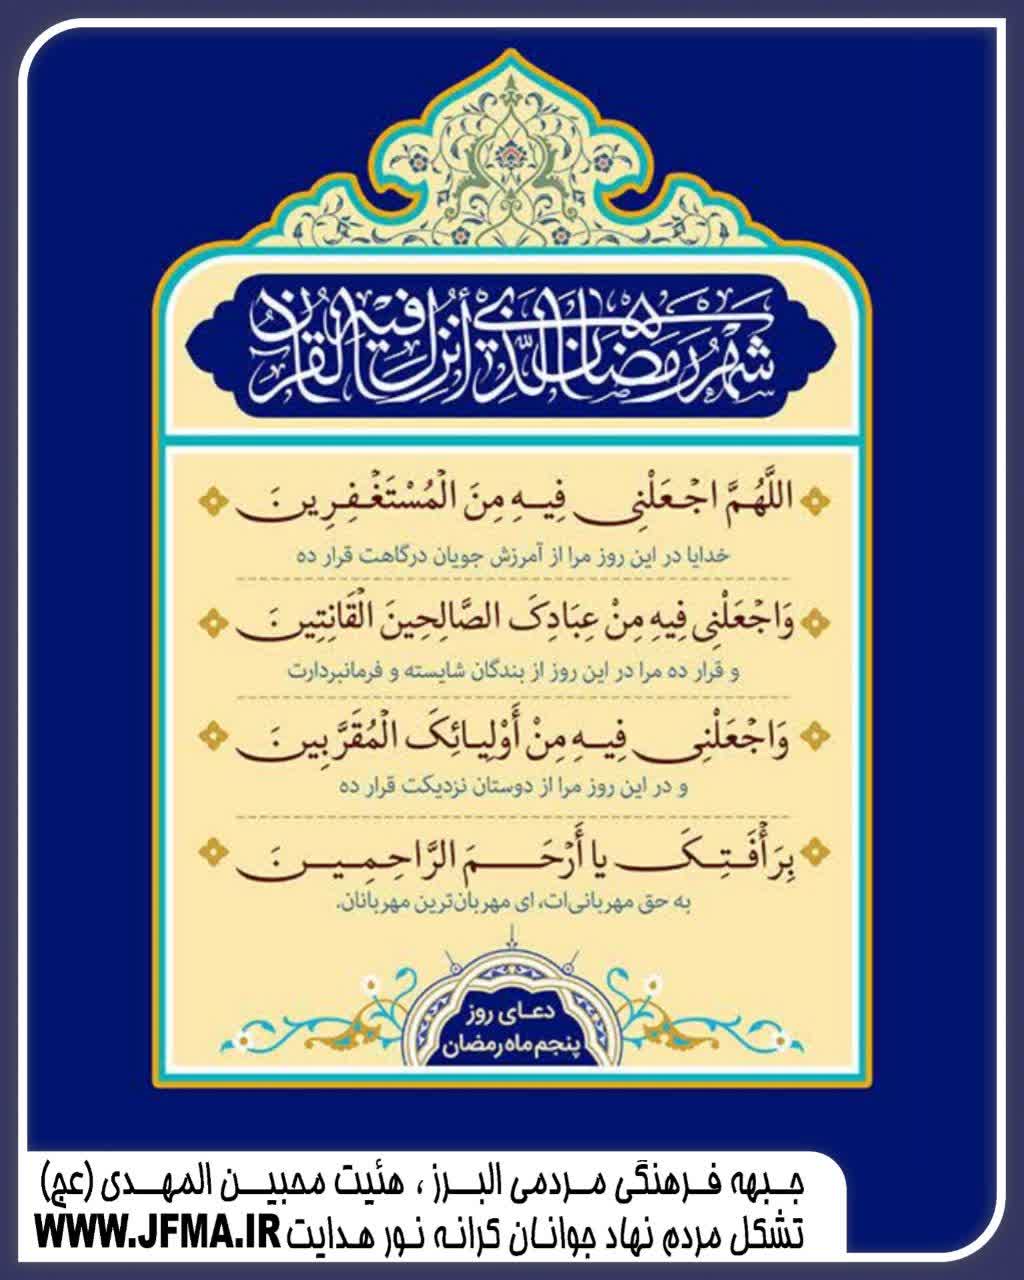 شَهْرُ رَمَضَانَ الَّذِي أُنْزِلَ فِيهِ الْقُرْآنُ
اللَّهُمَّ اجْعَلْنِي فِيهِ مِنَ الْمُسْتَغْفِرِينَ
خدایا در این روز مرا از آمرزش جویان درگاهت قرار ده
وَاجْعَلْنِي فِيهِ مِنْ عِبَادِکَ الصَّالِحِينَ الْقَانِتِينَ
و قرار ده مرا در این روز از بندگان شایسته و فرمانبردارت
وَاجْعَلْنِي فِيهِ مِنْ أَوْلِيائِکَ الْمُقَرَّبِينَ
و در این روز مرا از دوستان نزدیکت قرار ده
بِرَأْفَتِکَ يا أَرْحَمَ الرَّاحِمِينَ
به حق مهربانی‌ات، ای مهربان‌ترین مهربانان.
دعای روز
پنجم ماه رمضان
جبهه فرهنگی مردمی البرز ، هئیت محبین المهدی (عج)
تشکل مردم نهاد جوانان کرانه نور هدایت WWW.JFMA.IR